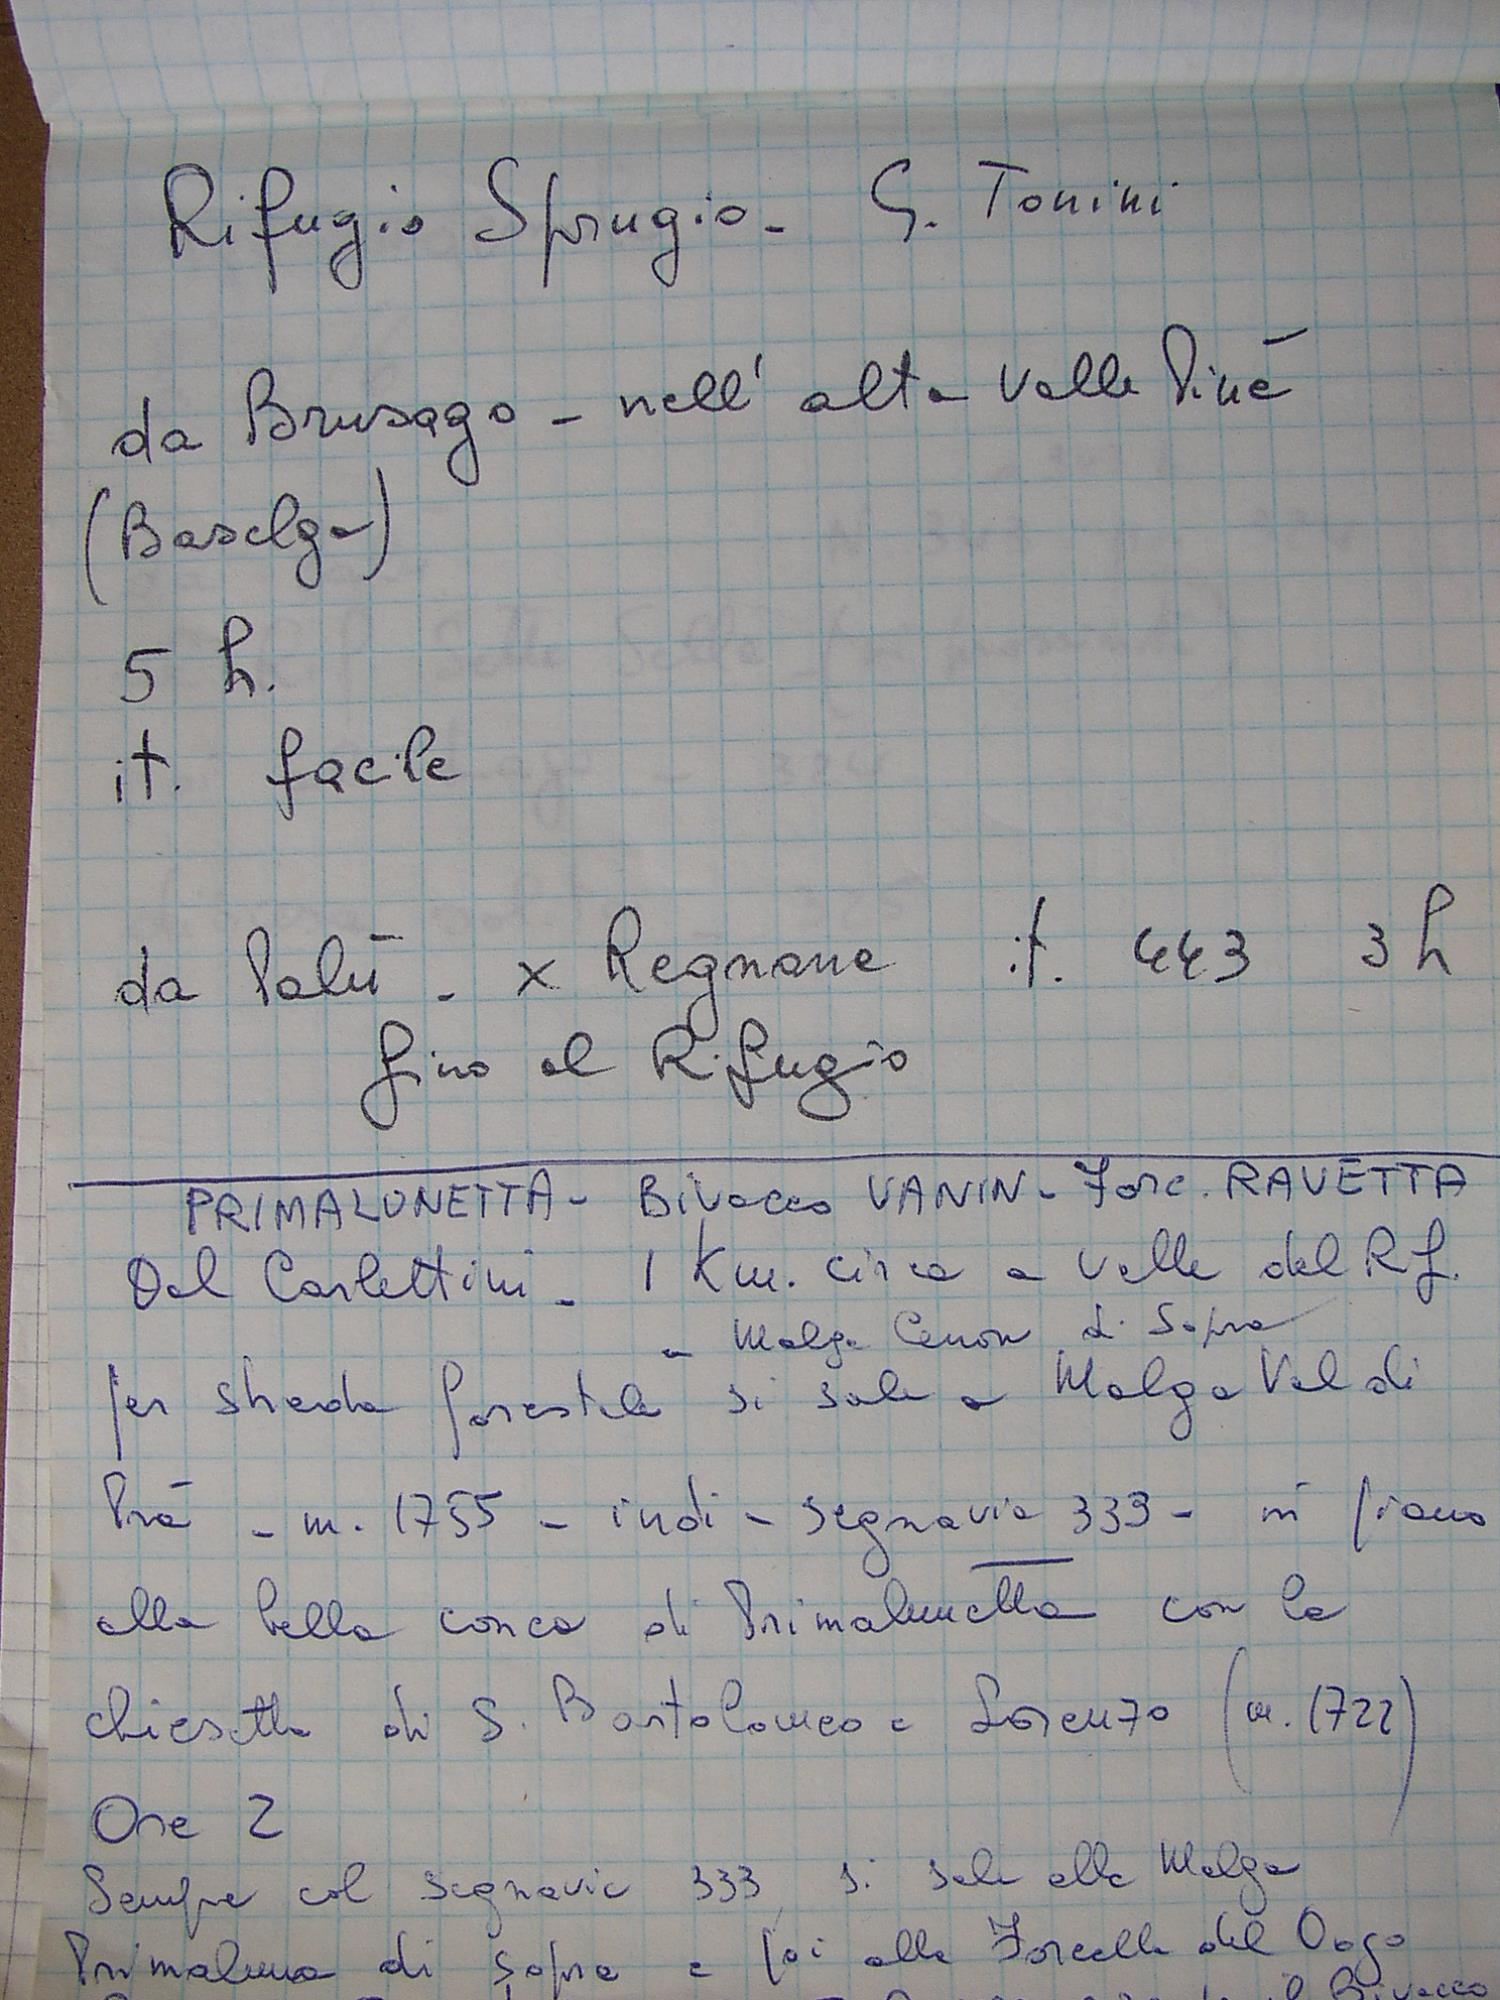 Rifugio Sprugio - G. Tonini
da Brusago - nell' alta Valle Piné
(Baselga)
5 h.
it. facile
da Palù - x Regnane it. 443 3 h
fino al Rifugio
PRIMALUNETTA - Bivacco VANIN - Forc. RAVETTA
Dal Carlettini - 1 Km. circa a valle del Rf.
a Malga Cenon di Sopra
per strada forestale si sale a Malga Val di
Prà - m. 1755 - indi - segnavia 333 - in piano
alla bella conca di Primalunetta con la
chiesetta di S. Bartolomeo e Lorenzo (m. 1722)
Ore 2
Sempre col segnavia 333 si sale alla Malga
Primaluna di Sopra e poi alla Forcella del Dogo
il Bivacco